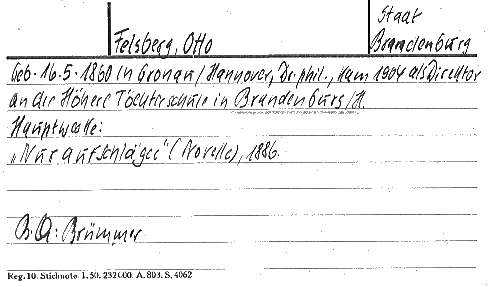 Felsberg, Otto
Staat
Brandenburg
Geb. 16.5.1860 in Gronau/Hannover, Dr. phil., kam 1904 als Direktor
an die Höhere Töchterschule in Brandenburg/H.
Hauptwerke:
(Novelle), 1886.
B.A: Brümmer
Reg. 10. Stichnote. I. 50. 232000. A. 803. S. 4062